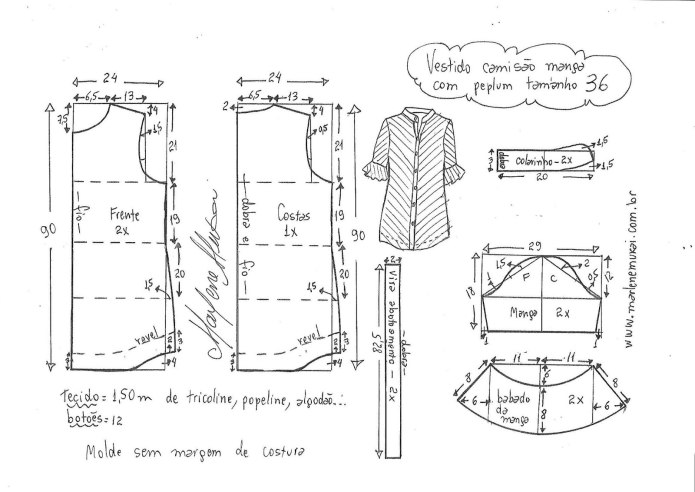 Vestido camisão manga
com peplum tamanho 36
24
6,5
13
7,5
4
1,5
21
90
fio
Frente
2x
19
20
1,5
revel
3
2
3
4
Marlene Mukai
24
6,5
13
2
4
0,5
21
dobra e fio
Costas
1x
19
90
20
1,5
revel
3
2
3
4
2
Vira abotoamento - 2x
dobra
82,5
3
dobra
colarinho - 2x
1,5
1,5
20
www.marlenemukai.com.br
29
1,5
2
1
F
C
0,5
12
18
Manga
2x
1
1
11
11
8
6
8
6
babado
da
manga
8
2x
6
Tecido = 1,50m de tricoline, popeline, algodão...
botões = 12
Molde sem margem de costura